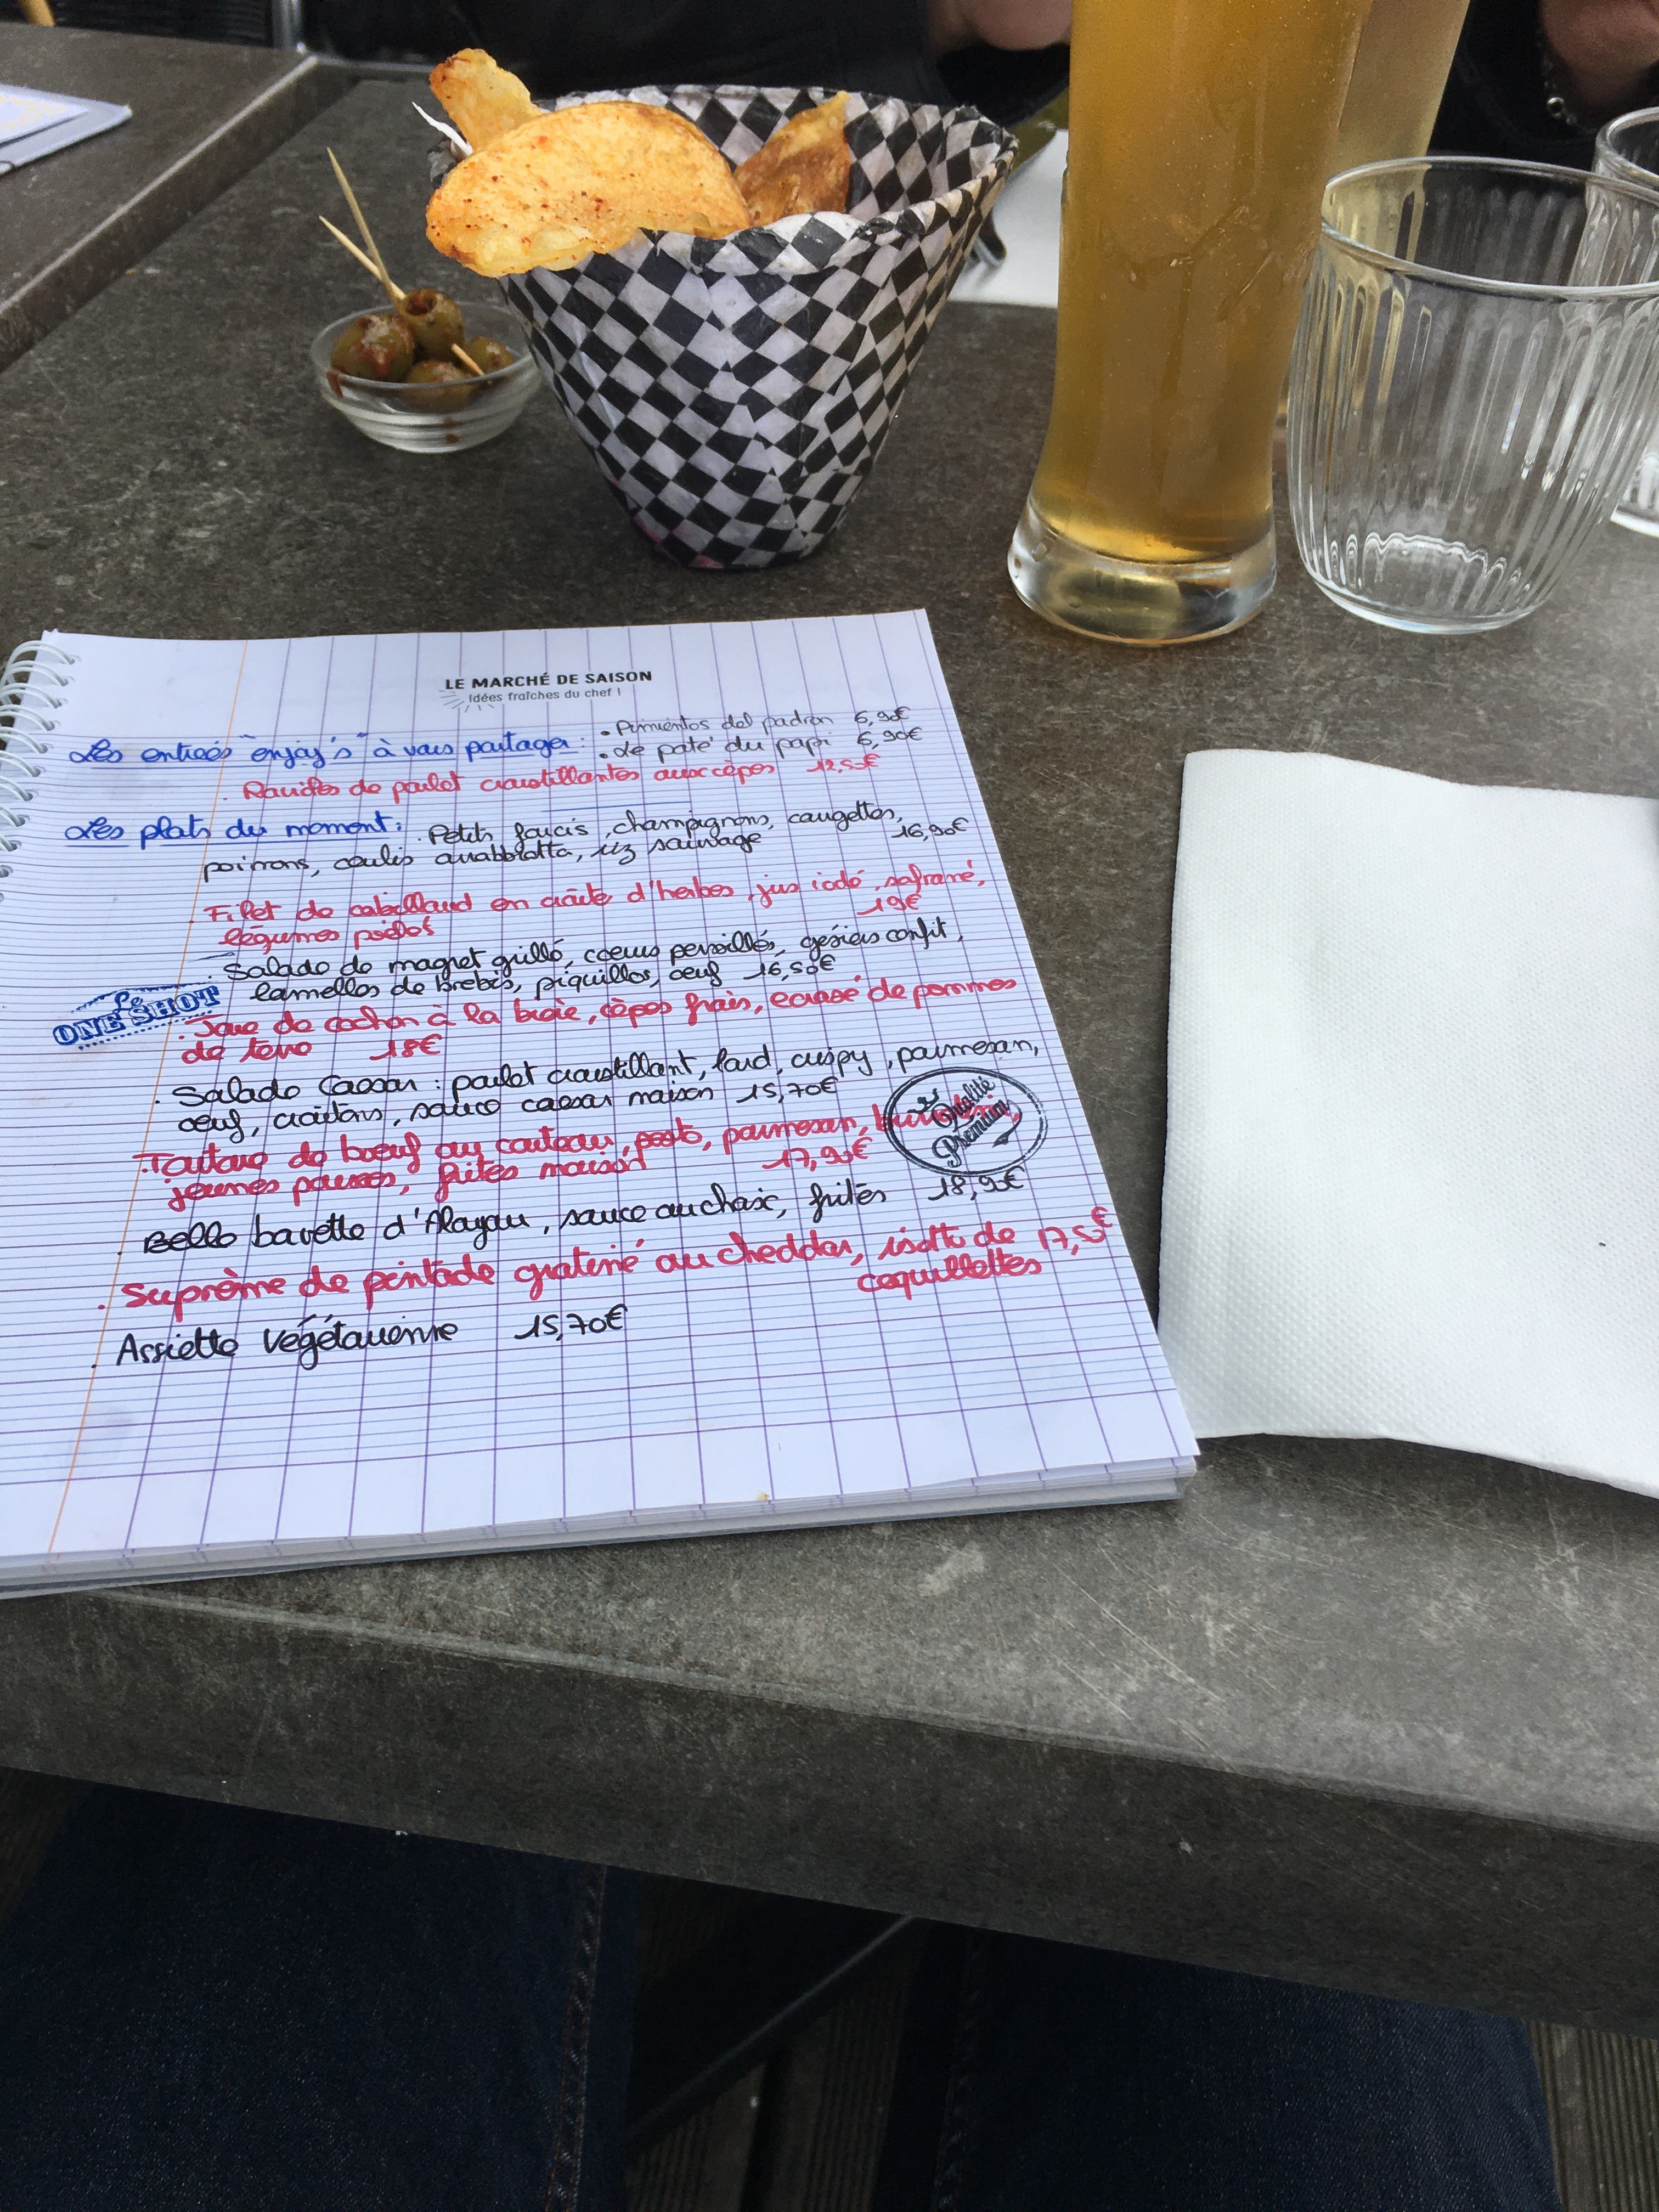 LE MARCHÉ DE SAISON
Idées fraîches du chef !
. Pimientos del padron 6,90€
Les entrées "enjoy's" à vous partager : . Le paté du papi 6,90€
. Raviolis de poulet croustillantes aux cèpes 12,50€
Les plats du moment : . Petits farcis, champignons, courgettes,
poivrons, coulis arrabbiatta, riz sauvage 16,90€
. Filet de cabillaud en croûte d'herbes, jus iodé, safrané,
légumes poêlés 19€
. Salade de magret grillé, coeurs persillés, gésiers confit,
lamelles de brebis, piquillos, oeuf 16,50€
Le ONE SHOT
. Joue de cochon à la bière, cèpes frais, ecrasé de pommes
de terre 18€
. Salade Caesar : poulet croustillant, lard, crispy, parmesan,
oeuf, croûtons, sauce caesar maison 15,70€
. Tartare de boeuf au couteau, pesto, parmesan,
jeunes pousses, frites maison 17,90€
Qualité Premium
. Belle bavette d'Aloyau, sauce au choix, frites 18,90€
. Suprème de pintade gratiné au cheddar, risotto de 17,50€
coquillettes
. Assiette végétarienne 15,70€